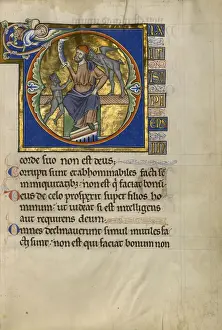 corde suo non est deus.
Corrupti sunt & abhominabiles facti sc̄
iniquitatib; non est q̇ faciat bonū
Deus de celo prospexit super filios ho
minum ut uideat si est intelligens
aut requirens deum.
Omnes declinauerunt simul inutiles fa
cti sunt non est qui faciat bonum non